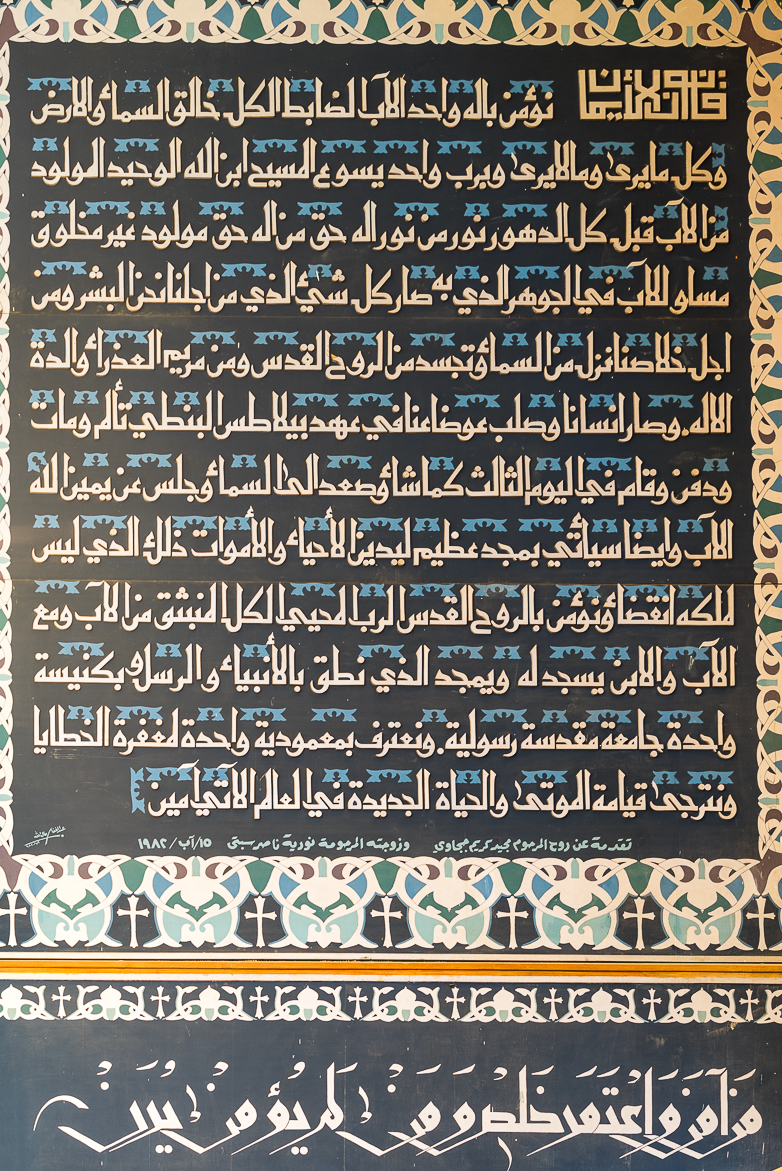 قانون الايمان نؤمن باله واحد الآب الضابط الكل خالق السماء والارض
وكل مايرى ومالايرى وبرب واحد يسوع المسيح ابن الله الوحيد المولود
من الآب قبل كل الدهور نور من نور اله حق من اله حق مولود غير مخلوق
مساو للآب في الجوهر الذي به صار كل شيء الذي من اجلنا نحن البشر ومن
اجل خلاصنا نزل من السماء وتجسد من الروح القدس ومن مريم العذراء والدة
الاله. وصار انسانا وصلب عوضا عنا في عهد بيلاطس البنطي تألم ومات
ودفن وقام في اليوم الثالث كما شاء وصعد الى السماء وجلس عن يمين الله
الآب وايضا سيأتي بمجد عظيم ليدين الأحياء والأموات ذلك الذي ليس
لملكه انقضاء ونؤمن بالروح القدس الرب المحيي الكل المنبثق من الآب ومع
الآب والابن يسجد له ويمجد الذي نطق بالأنبياء والرسل وبكنيسة
واحدة جامعة مقدسة رسولية. ونعترف بمعمودية واحدة لمغفرة الخطايا
ونترجى قيامة الموتى والحياة الجديدة في العالم الآتي آمين
تقدمة عن روح المرحوم مجيد كريم وزوجته المرحومة نورية ناصر سبتي ١٥/آب/١٩٨٢
من آمن واعتمد خلص ومن لم يؤمن يدن